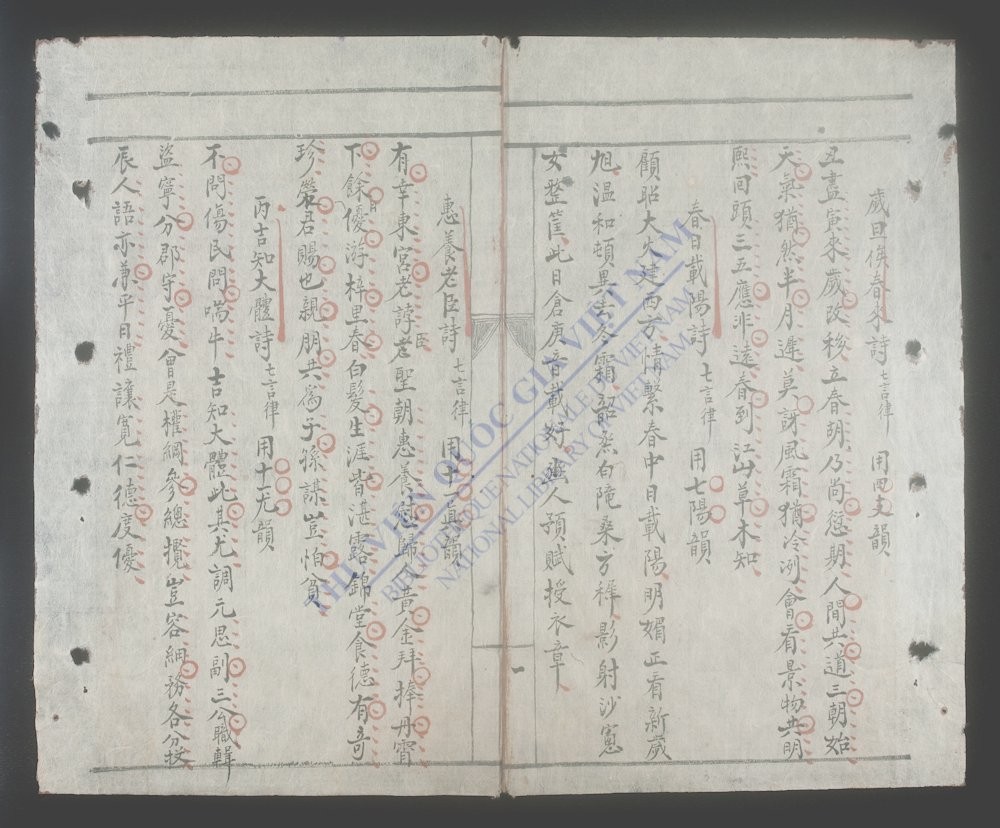 歲旦俟春來詩 七言律 用四支韻
丑盡寅來歲改移立春胡乃尚愆期人間共道三朝始
天氣猶然半月遲莫訝風霜猶冷冽會看景物共明
熙回頭三五應非遠春到江山草木知
春日載陽詩 七言律 用七陽韻
顧昭大火建西方情繫春中日載陽明媚正看新歲
旭溫和頓異去冬霜韶烝白陸乗方穉影射沙窻
女整筐此日倉庚音載好幽人預賦授衣章
一
惠養老臣詩 七言律 用十一真韻
有幸東宮老誇老臣聖朝惠養慰歸人黃金拜捧丹霄
下餘俸優游梓里春白髮生涯皆湛露錦堂食德有奇
珍榮君賜也親朋共爲子孫謀豈怕貧
丙吉知大體詩 七言律 用十一尤韻
不問傷民問喘牛吉知大體此其尤調元思副三公職輯
盜寧分郡守憂會是權綱參總攬豈容細務各分投
辰人語亦凖平日禮讓寬仁德度優
THƯ VIỆN QUỐC GIA VIỆT NAM
BIBLIOTHÈQUE NATIONALE DU VIETNAM
NATIONAL LIBRARY OF VIETNAM